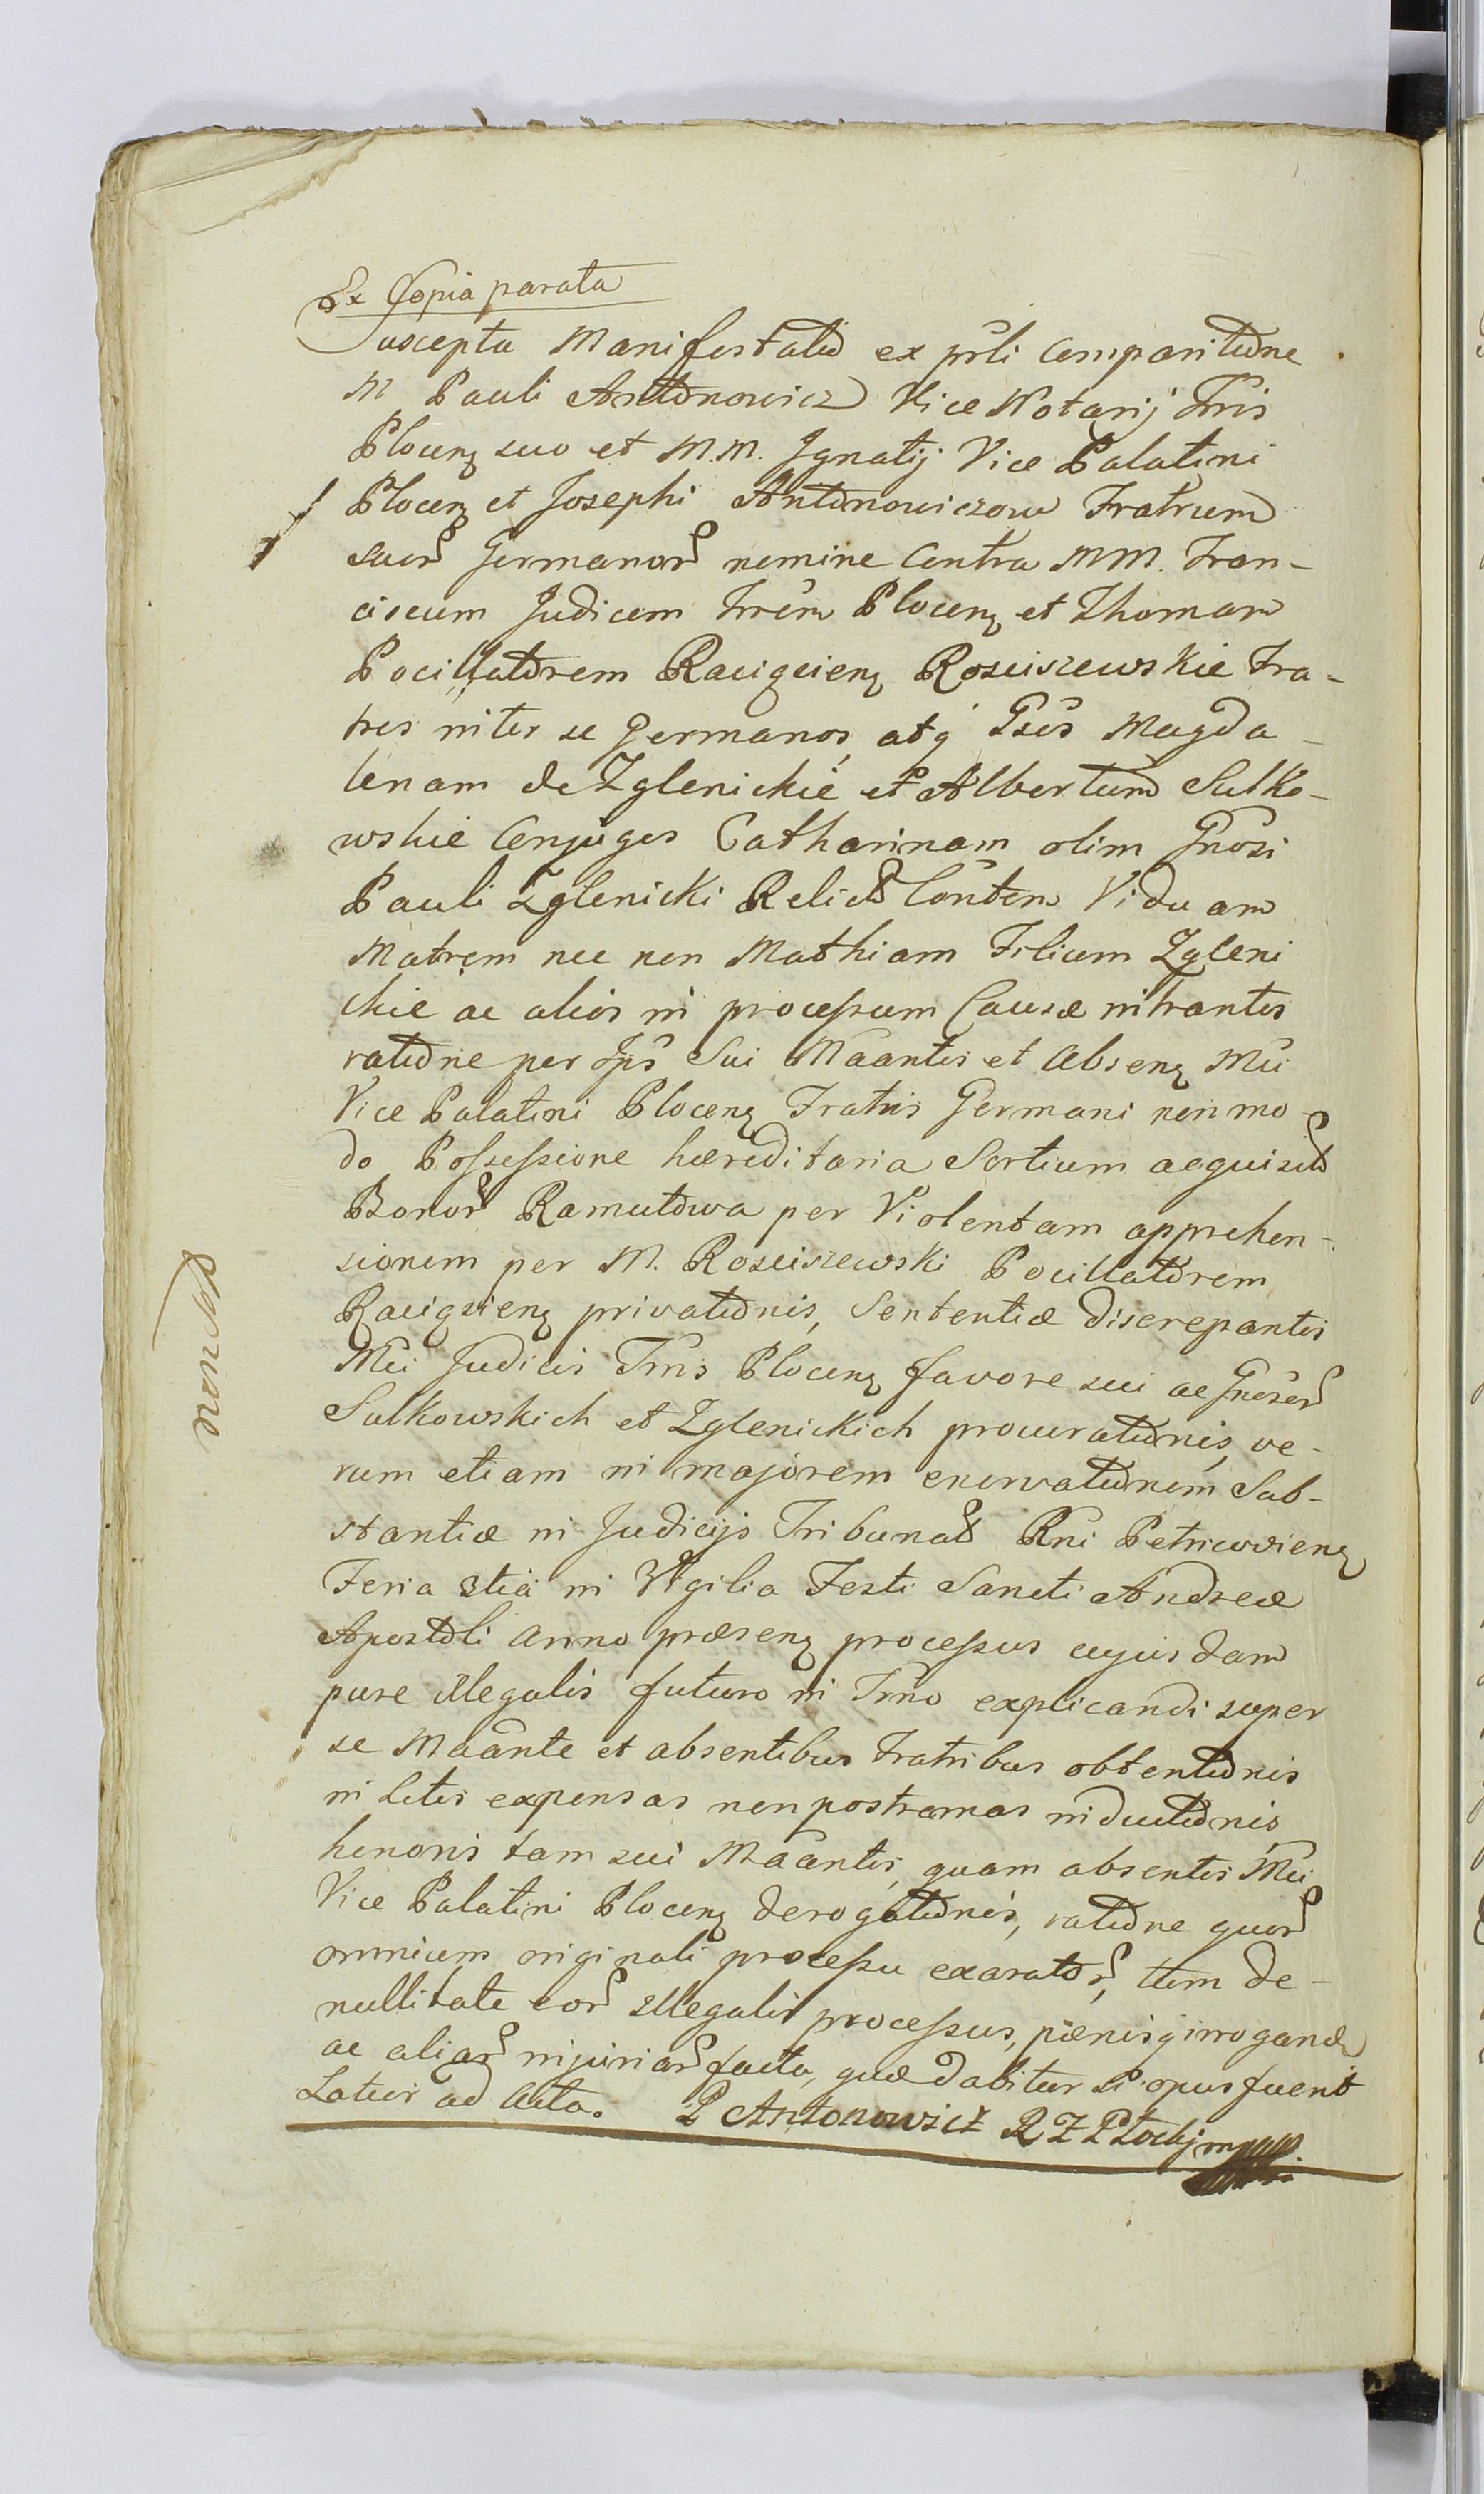 Ex Copia parata
Suscepta Manifestatio ex prsli Comparitione
M Pauli Antonowicz Vice Notarij Trris
Plocen suo et M.M. Ignatij Vice Palatini
Plocen et Josephi Antonowiczow Fratrum
suor Germanor nomine Contra MM. Fran-
ciscum Judicem Trrem Plocen et Thomam
Pocillatorem Raciązien Rosciszewskie Fra-
tres inter se Germanos, atq Gsos Magda-
lenam de Zglenickie et Albertum Sulko-
wskie Conjuges Catharinam olim Gnosi
Pauli Zglenicki Relict Contem Viduam
Matrem nec non Mathiam Filium Zgleni
ckie ac alios in processum Causæ intrantes
ratione per Ips Sui Maantis et absen Mci
Vice Palatini Plocen Fratris Germani non mo-
do Possessione hæreditaria Sortium acquisit
Bonor Ramutowa per Violentam apprehen-
sionem per M. Rosciszewski Pocillatorem
Raciązien privationis, Sententiæ discrepantis
Mci Judicis Trris Plocen favore sui ac Gnosor
Sulkowskich et Zglenickich procurationis, ve-
rum etiam in majorem enervationem Sub-
stantiæ in Judicijs Tribunal Rni Petricovien
Feria 3tia in Vigilia Festi Sancti Andreæ
Apostoli anno præsen processus cujusdam
pure illegalis futuro in Trmo explicandi super
se Maante et absentibus Fratribus obtentionis
in Litis expensas non postremas inductionis,
honoris tam sui Maantis, quam absentis Mci
Vice Palatini Plocen derogationis, ratione quor
omnium originali processu exarator, tum de-
nullitate eor illegalis processus, pœnisq irrogand
ac aliar injuriar facta, quæ dabitur si opus fuerit
Latius ad Acta. P Antonowicz R Z Płocki mpp